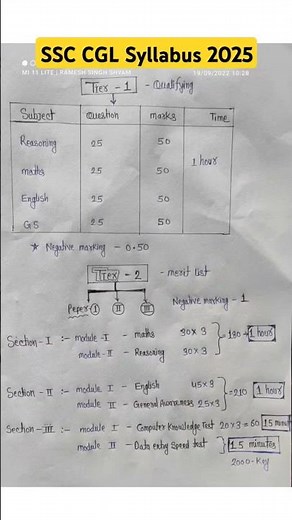 SSC CGL Syllabus 2025
MI 11 LITE | RAMESH SINGH SHYAM
14/09/2023 10:28
Tier - 1 - Qualifying
Subject Question marks Time
Reasoning 25 50
maths 25 50 1 hour
English 25 50
GS 25 50
★ Negative marking - 0.50
Tier - 2 - merit list
Peper I II III Negative marking - 1
Section - I :- module - I - maths 30 x 3
module - II - Reasoning 30 x 3 } = 180 - 1 hour
Section - II :- module I - English 45 x 3
module II - General Awareness 25 x 3 } = 210 1 hour
Section - III :- module I - Computer Knowledge Test 20 x 3 = 60 15 minut
module II - Data entry Speed test } 15 minutes
2000 - Key